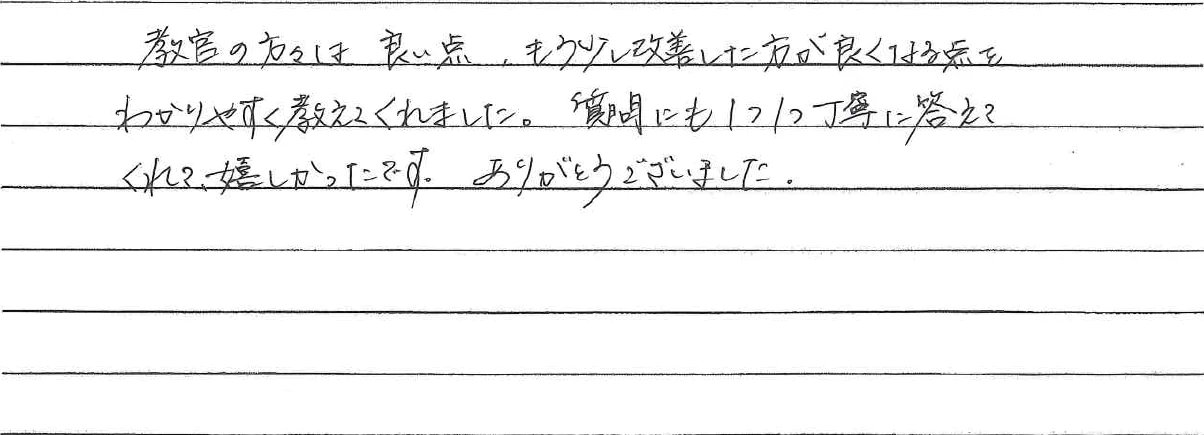 教官の方々は 良い点、もう少し改善した方が良くなる点を
わかりやすく教えてくれました。質問にも1つ1つ丁寧に答えて
くれて、嬉しかったです。ありがとうございました。